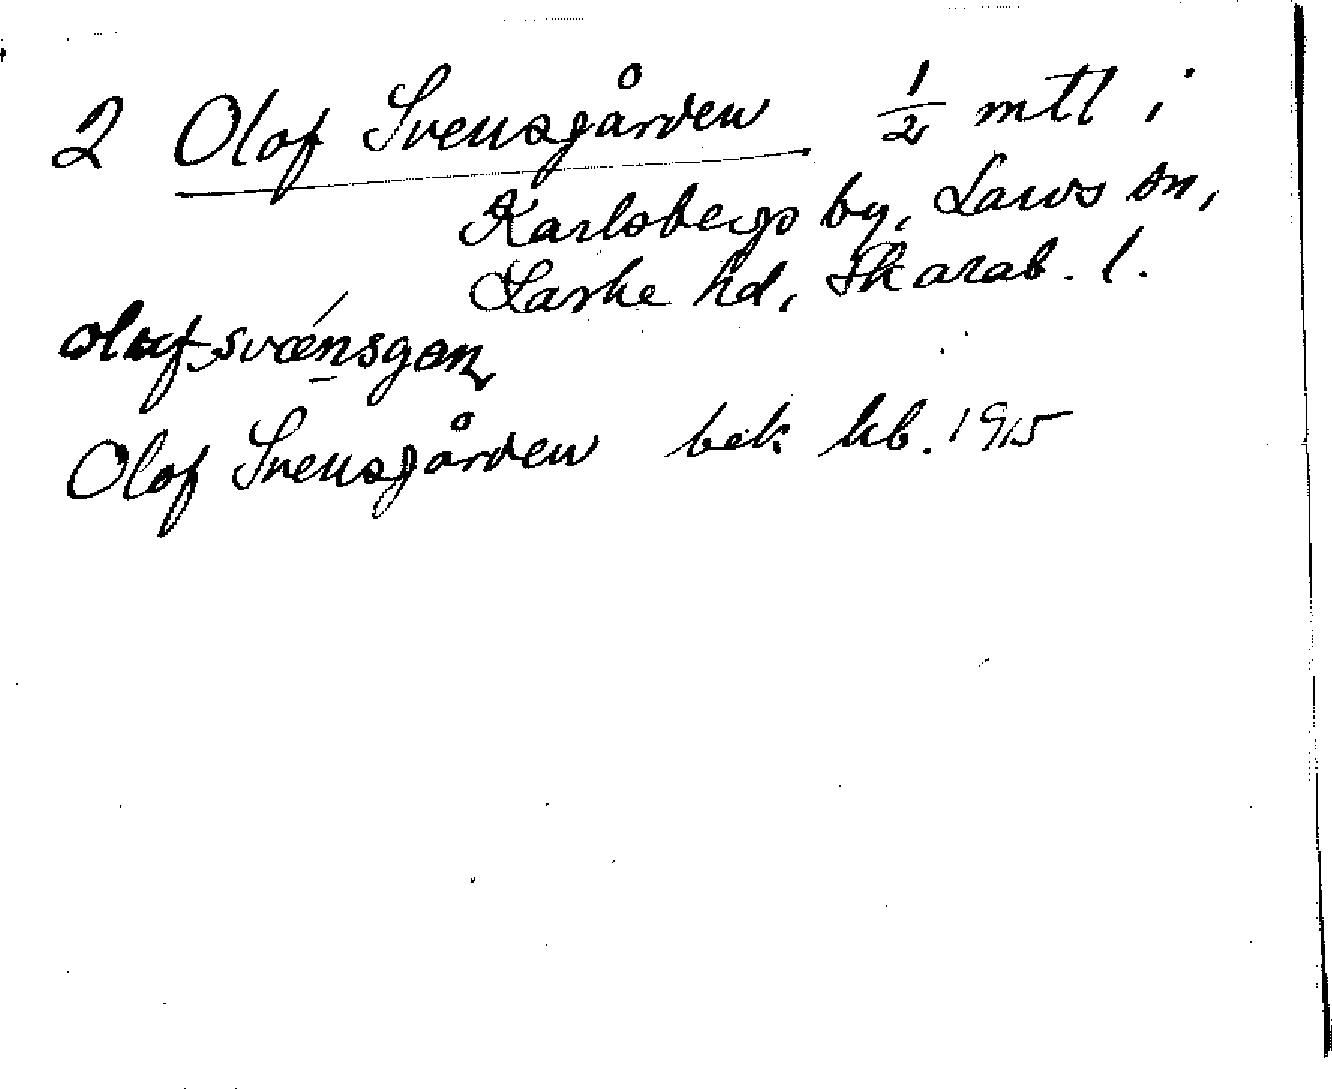 2 Olof Svensgården ½ mtl i
Karlsbergs by, Laws sn,
Laske hd, Skarab. l.
olofsvænsgan
Olof Svensgården bek kb. 1915